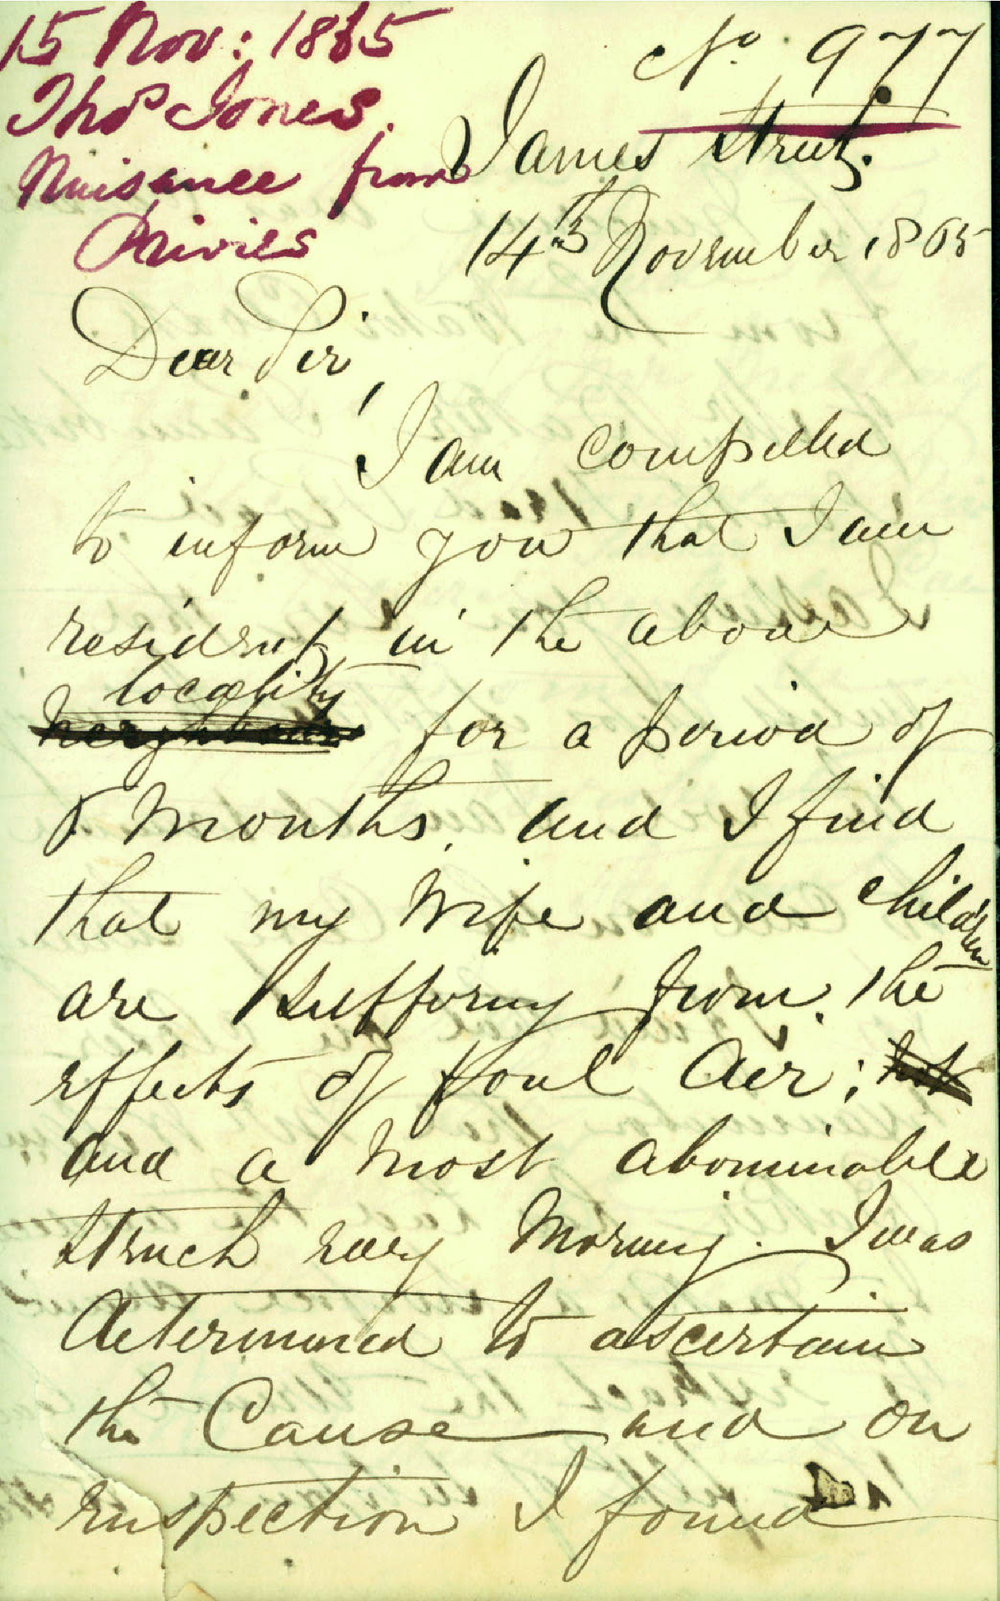 15 Nov: 1865
Thos Jones.
Nuisance from
Privies
No. 977
James Street.
14th November 1865
Dear Sir,
I am compelled
to inform you that I am
resident in the above
locality
neighbour for a period of
5 Months. and I find
that my Wife and children
are suffering from the
effects of foul Air; not
and a most abominable
strnch evey Morning. I was
determined to ascertain
the Cause and on
enspection I found